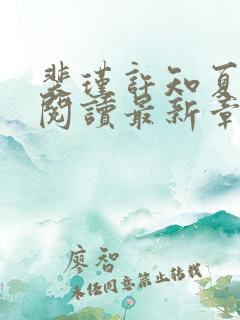 裴瑾許知夏
閱讀最新章
廖智
未经同意禁止转载